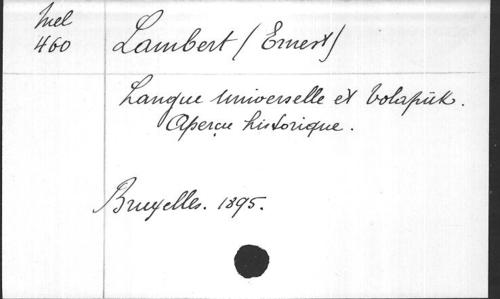 Mel
460
Lambert (Ernest)
Langue universelle et Volapük.
Aperçu historique.
Bruxelles. 1895.